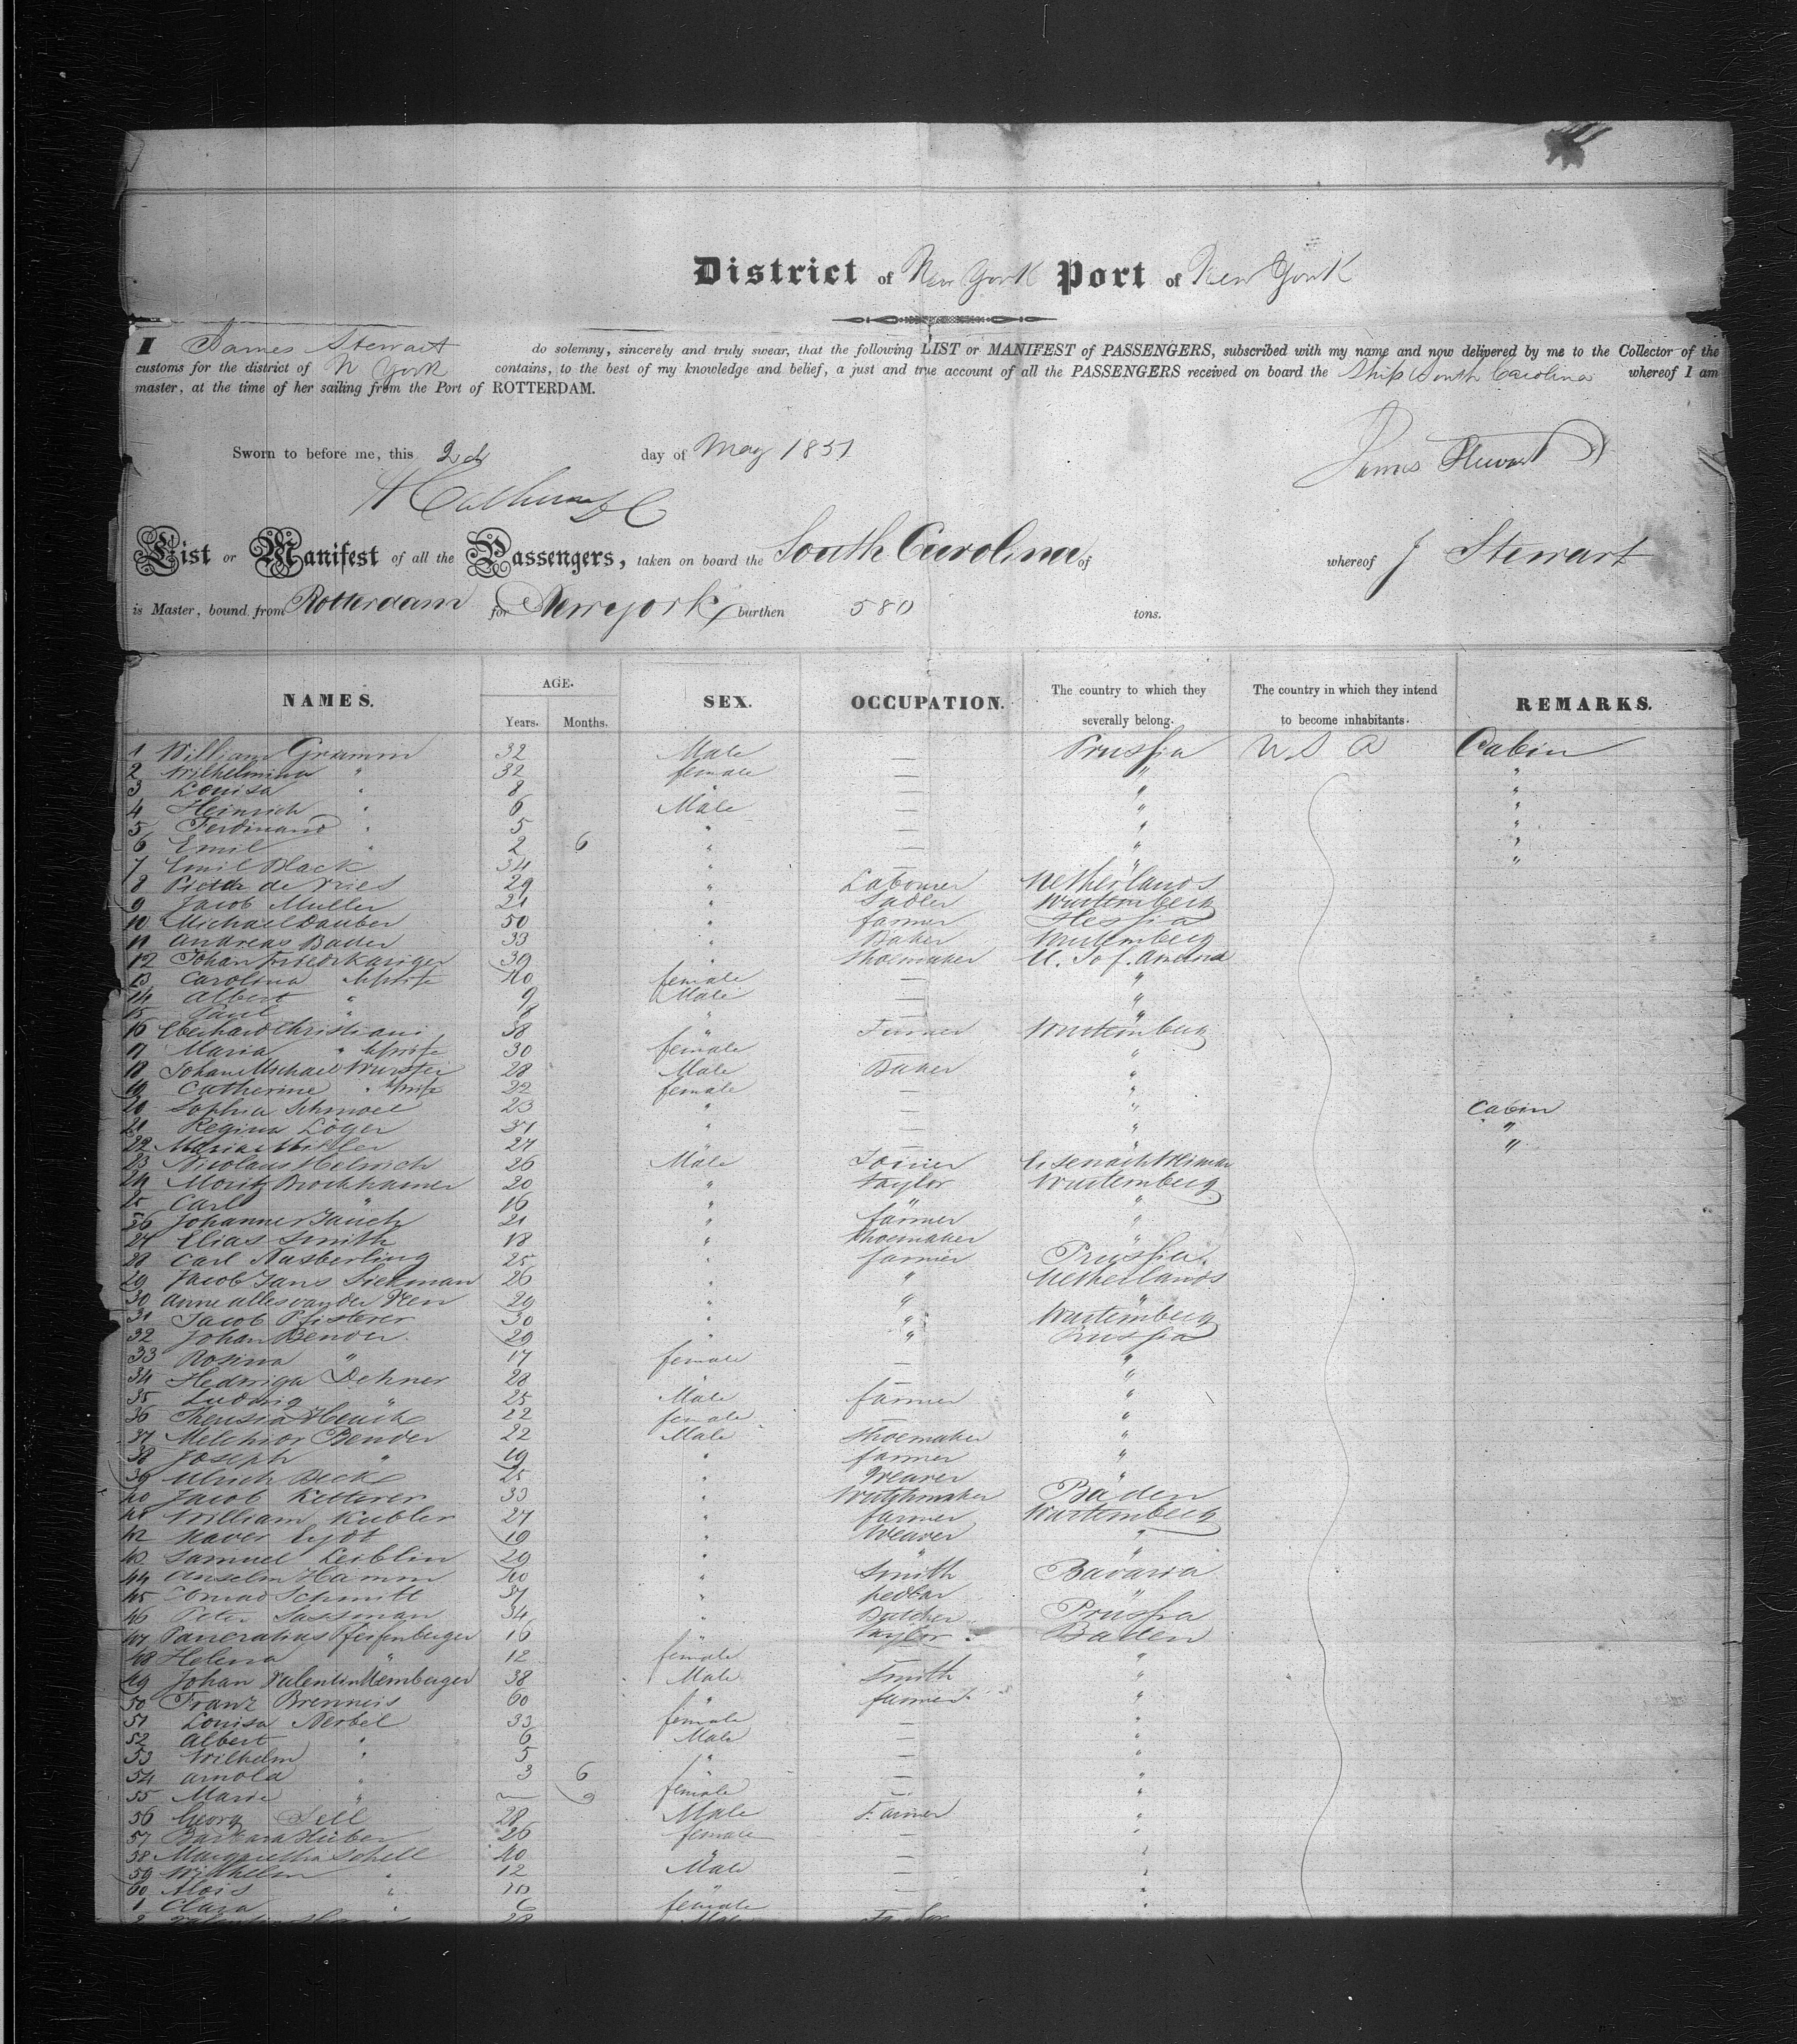 District of New York Port of New York
I James Stewart do solemny, sincerely and truly swear, that the following LIST or MANIFEST of PASSENGERS, subscribed with my name and now delivered by me to the Collector of the
customs for the district of N York contains, to the best of my knowledge and belief, a just and true account of all the PASSENGERS received on board the Ship South Carolina whereof I am
master, at the time of her sailing from the Port of ROTTERDAM.
Sworn to before me, this 2d day of May 1851 James Stewart
List or Manifest of all the Passengers, taken on board the South Carolina of whereof J Stewart
is Master, bound from Rotterdam for New york burthen 580 tons.
NAMES. AGE. Years. Months. SEX. OCCUPATION. The country to which they severally belong. The country in which they intend to become inhabitants. REMARKS.
1 William Gramm 32 Male — Prussia U S A Cabin
2 Wilhelmina " 32 female — " "
3 Louisa " 8 " — " "
4 Heinrich " 6 Male — " "
5 Ferdinand " 5 " — " "
6 Emil " 2 6 " — " "
7 Emil Black 34 " — " "
8 de Vries 29 " Labourer Netherlands
9 Jacob Muller 21 " Sadler Wurtemberg
10 Michael Dauber 50 " farmer Hessia
11 Andreas Bader 33 " Baker Wurtemberg
12 Johan 39 " Shoemaker U. S of America
13 Carolina " h wife 40 female — "
14 Albert " 9 Male — "
15 Paul " 8 " — "
16 Eberhard Christiani 38 " Farmer Wurtemberg
17 Maria " h wife 30 female — "
18 Johan Michael Wurster 28 Male Baker "
19 Catherine " h wife 22 female — "
20 Sophia 23 " — " Cabin
21 Regina Löger 31 " — " "
22 Maria 27 " — " "
23 Nicolaus Helmich 26 Male Joiner Eisenach Weimar
24 Moritz Brockhamer 20 " taylor Wurtemberg
25 Carl " 16 " " "
26 Johannes Jauch 21 " farmer "
27 Elias Smith 18 " Shoemaker "
28 Carl Nasberling 25 " farmer Prussia
29 Jacob Jans Siekman 26 " " Netherlands
30 van der Veen 29 " " "
31 Jacob Pfisterer 30 " " Wurtemberg
32 Johan Bender 29 " " Prussia
33 Rosina " 17 female — "
34 Hedwiga Dehner 28 " — "
35 Ludwig " 25 Male farmer "
36 Theresia 22 female — "
37 Melchior Bender 22 Male Shoemaker "
38 Joseph " 19 " farmer "
39 Ulrich Beck 25 " Weaver "
40 Jacob Ketterer 33 " Watchmaker Baden
41 William Kubler 27 " farmer Wurtemberg
42 Xaver 19 " Weaver "
43 Samuel Leiblin 29 " " "
44 Anselm Hamm 40 " Smith Bavaria
45 Conrad Schmitt 37 " pedlar "
46 Peter Sassman 34 " Butcher Prussia
47 Pancratius Pfeifenberger 16 " taylor Baden
48 Helena " 12 female "
49 Johan Valentin Memberger 38 Male Smith "
50 Franz Brenneis 60 " farmer "
51 Louisa Nerbel 33 female — "
52 Albert " 6 Male — "
53 Wilhelm " 5 " — "
54 Arnold " 3 6 " — "
55 Marie " — 9 female — "
56 Georg Sell 28 Male Farmer "
57 Barbara Huber 26 female — "
58 Margaretha Schell 40 " — "
59 Wilhelm " 12 Male — "
60 Alois " 10 " — "
1 Clara " 6 female "
2 28 Male Taylor